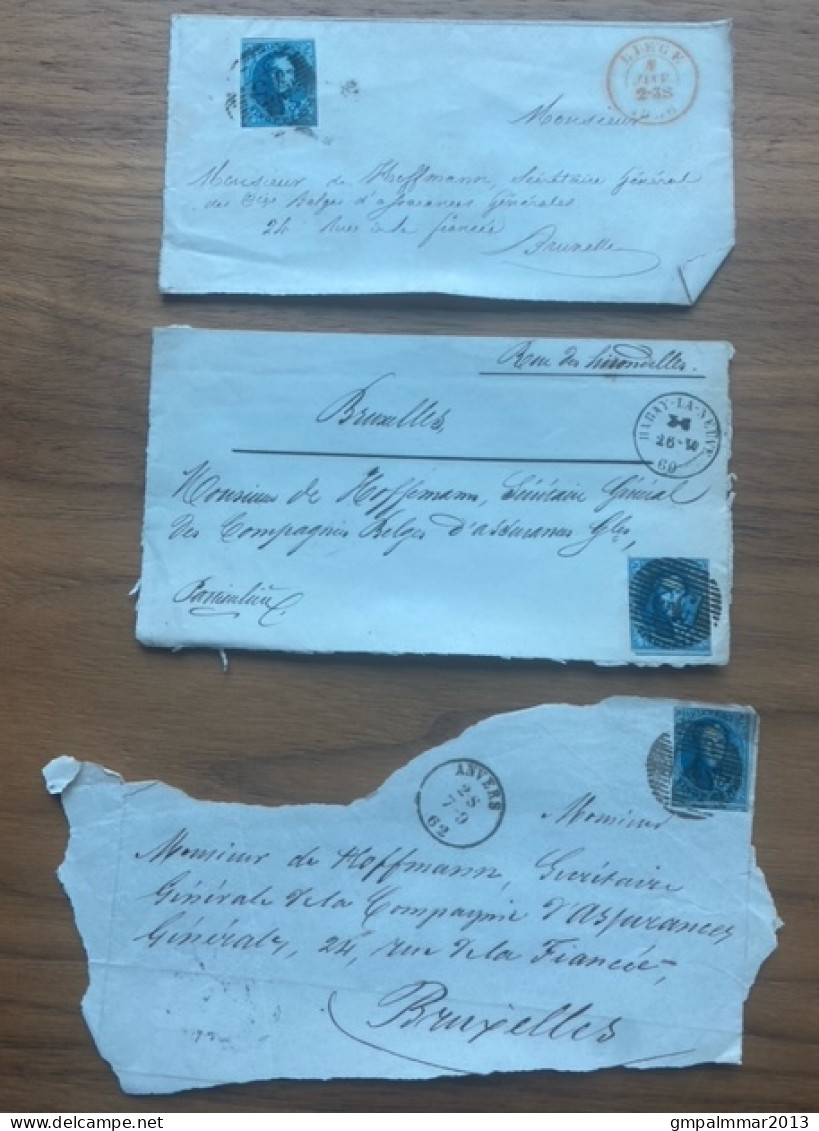 LIEGE
8
2-3S
Monsieur
Monsieur de Hoffmann, Secrétaire Général
des Cies Belges d'assurances Générales
24 rue de la fiancée
Bruxelle
Rue des hirondelles.
Bruxelles,
HABAY-LA-NEUVE
60
Monsieur de Hoffmann, Sécrétaire Général
des Compagnies Belges d'assurances Gles,
Particulière
ANVERS
28
7-9
62
Monsieur
Monsieur de Hoffmann, Secrétaire
Générale de la Compagnie d'Assurances
Générales, 24, rue de la Fiancée,
Bruxelles
delcampe.net
gmpalmmar2013